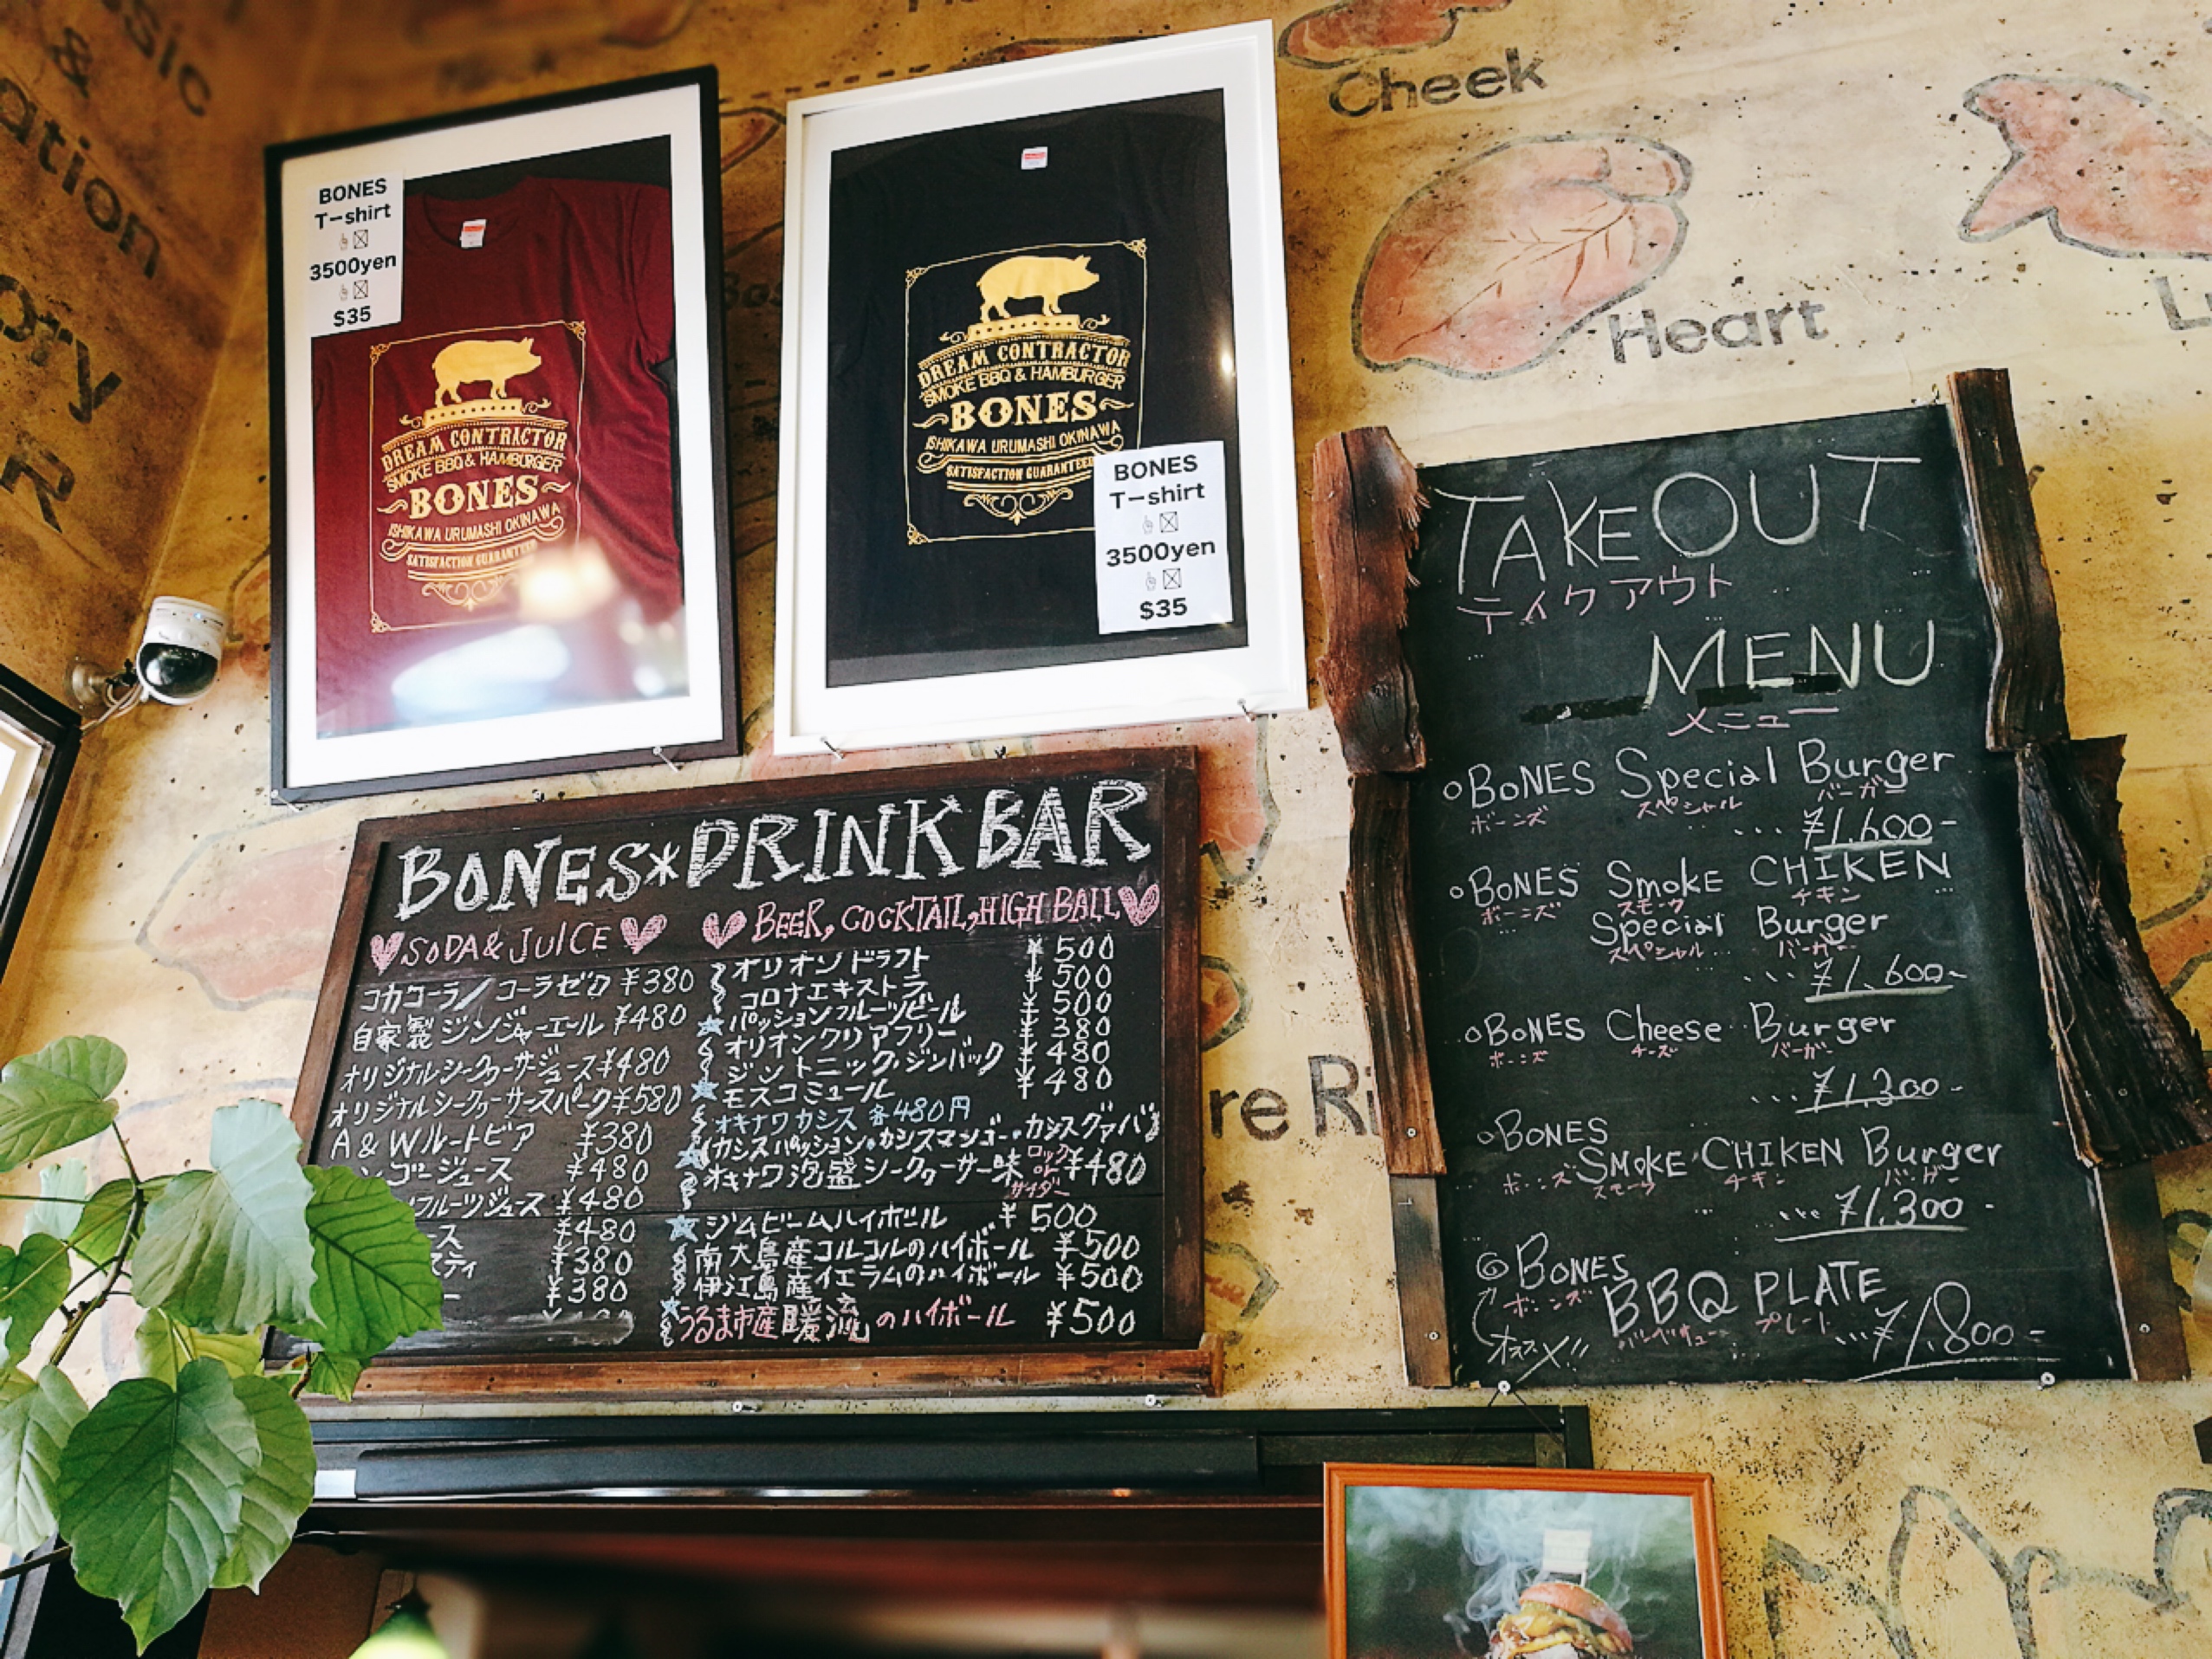 Cheek
Heart
BONES
T-shirt
3500yen
$35
DREAM CONTRACTOR
SMOKE BBQ & HAMBURGER
BONES
ISHIKAWA URUMASHI OKINAWA
SATISFACTION GUARANTEED
DREAM CONTRACTOR
SMOKE BBQ & HAMBURGER
BONES
ISHIKAWA URUMASHI OKINAWA
SATISFACTION GUARANTEED
BONES
T-shirt
3500yen
$35
BONES*DRINK BAR
SODA & JUICE
コカコーラ/コーラゼロ ¥380
自家製ジンジャーエール ¥480
オリジナルシークヮーサージュース ¥480
オリジナルシークヮーサースパーク ¥580
A & Wルートビア ¥380
ンゴージュース ¥480
フルーツジュース ¥480
ース ¥480
スティ ¥380
ー ¥380
BEER, COCKTAIL, HIGH BALL
オリオンドラフト ¥500
コロナエキストラ ¥500
パッションフルーツビール ¥500
オリオンクリアフリー ¥380
ジントニック・ジンバック ¥480
モスコミュール ¥480
オキナワカシス 各480円
(カシスパッション・カシスマンゴー・カシスグァバ)
オキナワ泡盛シークヮーサー味 ¥480
ロック
サイダー
ジムビームハイボール ¥500
南大島産コルコルのハイボール ¥500
伊江島産イエラムのハイボール ¥500
うるま市産「暖流」のハイボール ¥500
TAKE OUT
テイクアウト
MENU
メニュー
BONES Special Burger
ボーンズ スペシャル バーガー
... ¥1,600-
BONES Smoke CHIKEN
ボーンズ スモーク チキン
Special Burger
スペシャル バーガー
... ¥1,600-
BONES Cheese Burger
ボーンズ チーズ バーガー
... ¥1,300-
BONES
SMOKE CHIKEN Burger
ボーンズ スモーク チキン バーガー
... ¥1,300-
BONES
ボーンズ
BBQ PLATE
バーベキュー プレート
オススメ!!
... ¥1,800-